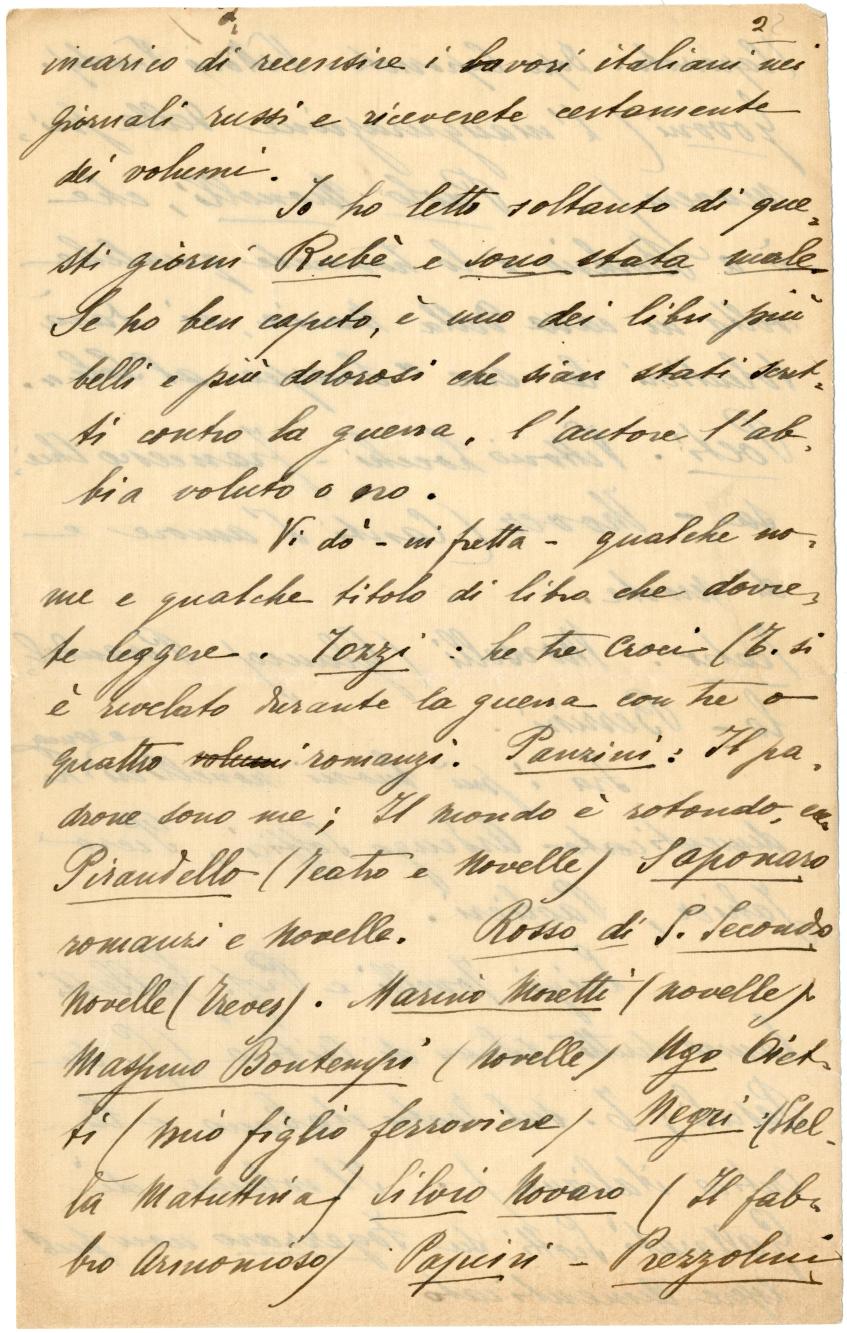 2
incarico di recensire i lavori italiani nei
giornali russi e riceverete certamente
dei volumi.
Io ho letto soltanto di que=
sti giorni Rubè e sono stata male.
Se ho ben capito, è uno dei libri più
belli e più dolorosi che sian stati scrit-
ti contro la guerra, l'autore l'ab-
bia voluto o no.
Vi dò - in fretta - qualche no-
me e qualche titolo di libro che dovre-
te leggere. Tozzi: Le tre Croci (T. si
è rivelato durante la guerra con tre o
quattro volumi romanzi. Panzini: Il pa-
drone sono me; Il mondo è rotondo,
Pirandello (Teatro e Novelle) Saponaro
romanzi e Novelle. Rosso di S. Secondo
Novelle (Treves). Marino Moretti (novelle)
Massimo Bontempi (Novelle) Ugo Oiet-
ti (mio figlio ferroviere) Negri (Stel-
la Matuttina) Silvio Novaro (Il fab-
bro Armonioso) Papini - Prezzolini